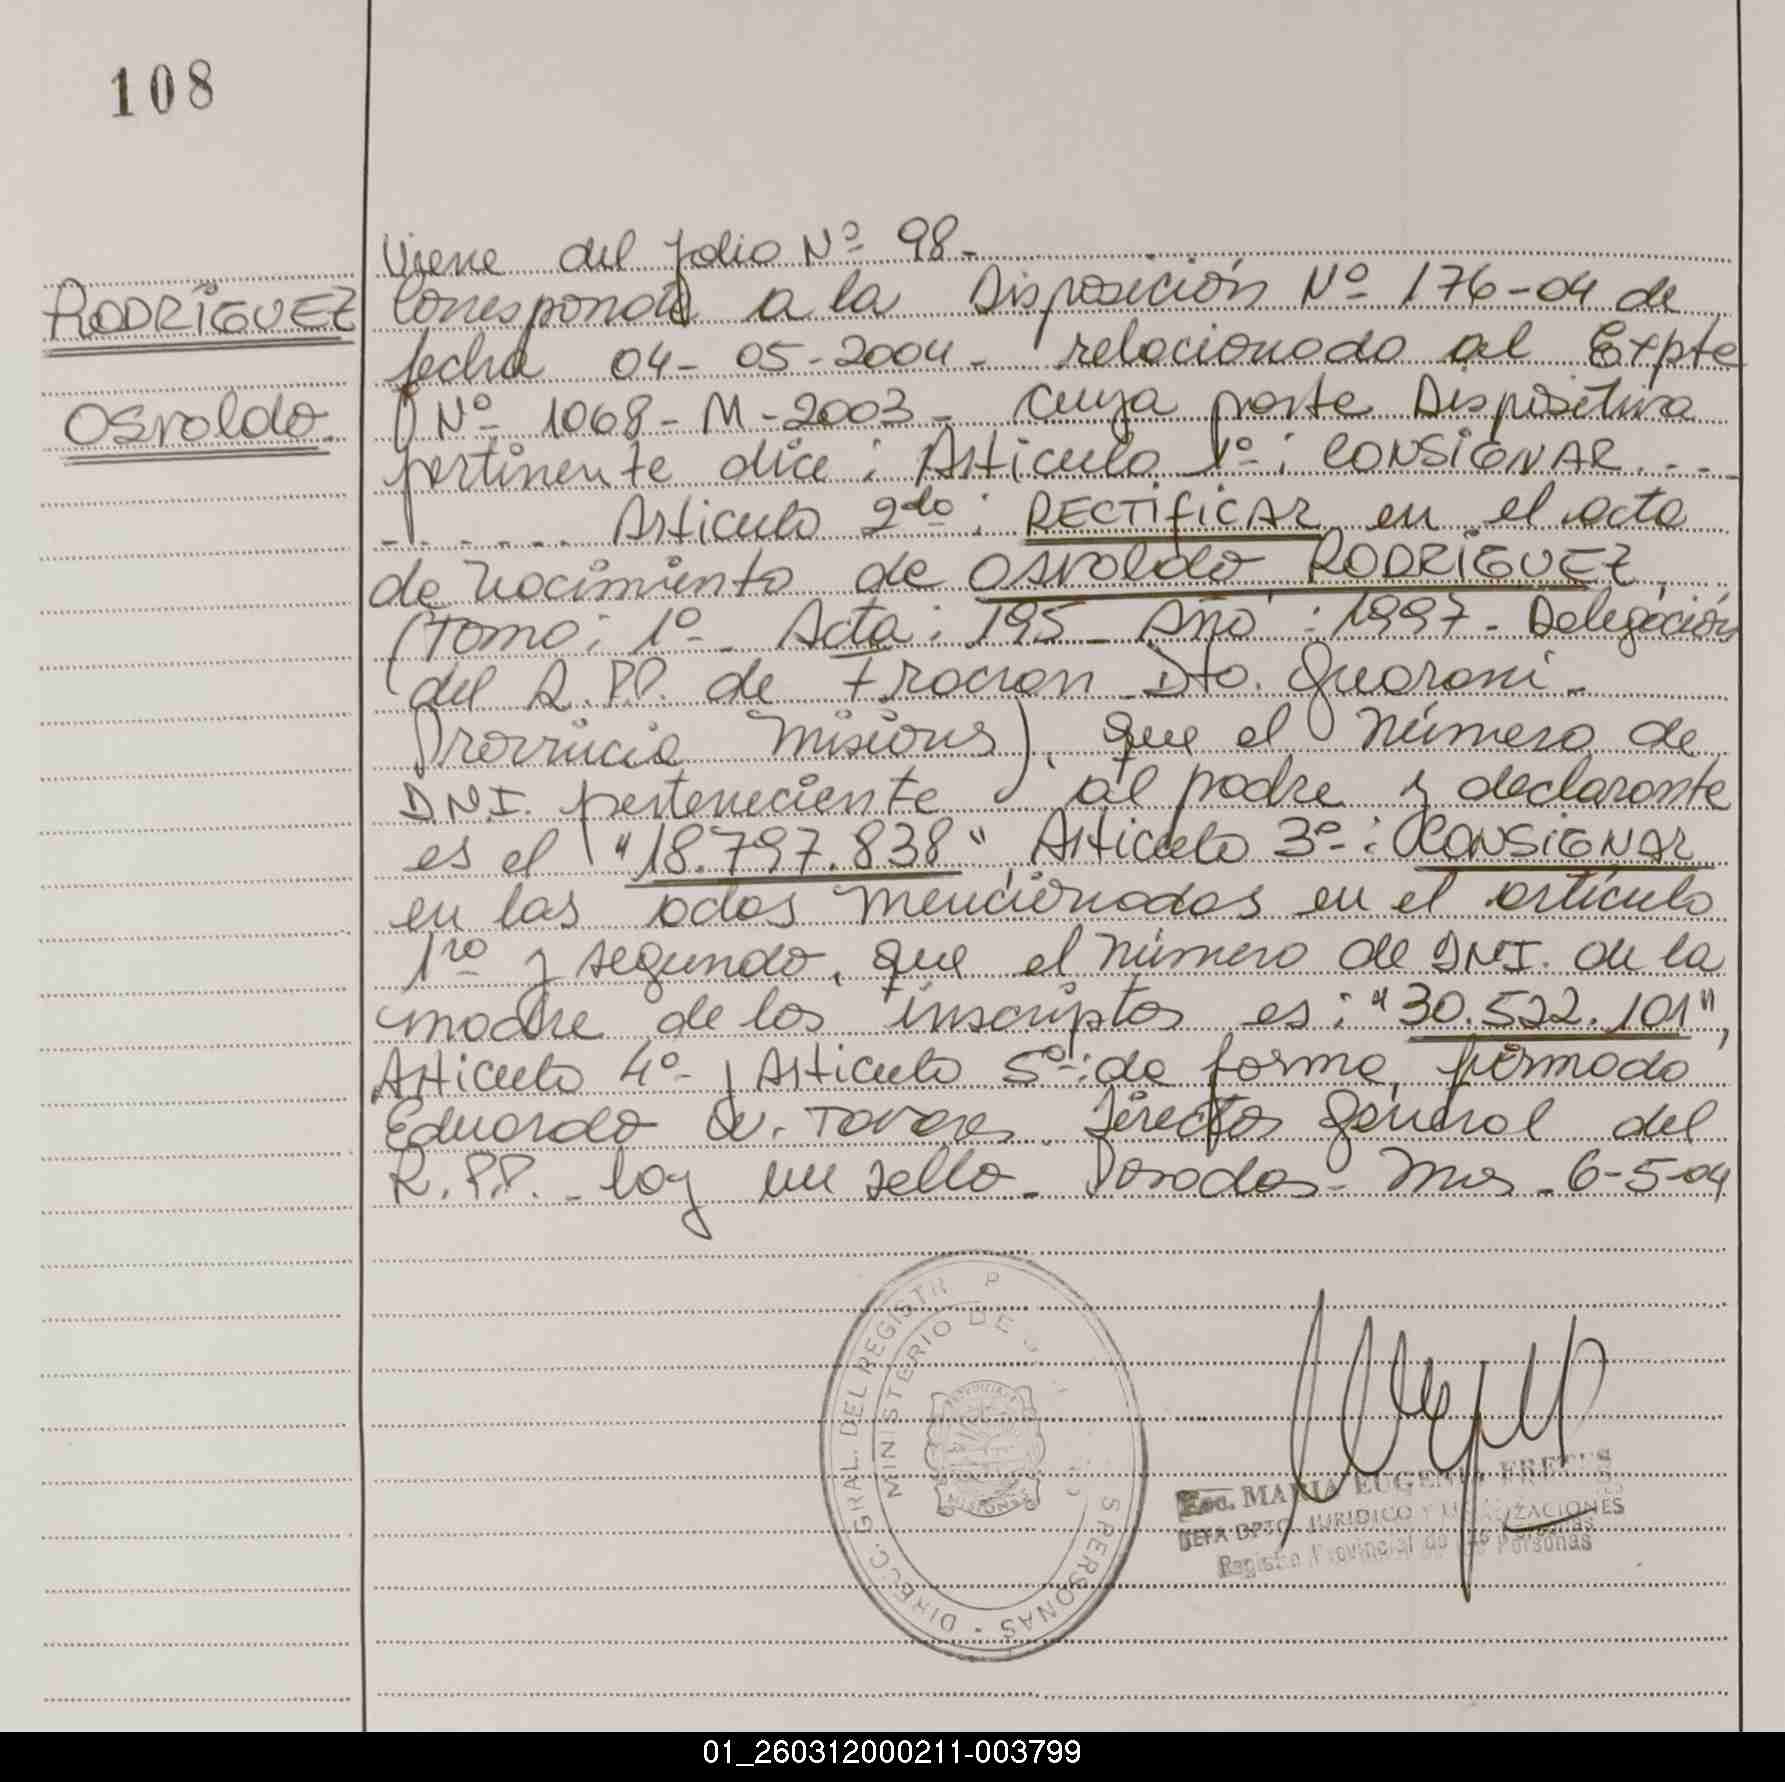 108
Viene del folio Nº 98-
RODRÍGUEZ
Osvaldo.
Corresponde a la Disposición Nº 176-04 de
fecha 04-05-2004- relacionado al Expte
Nº 1068-M-2003- cuya parte Dispositiva
pertinente dice: Articulo 1º: CONSIGNAR....
....... Articulo 2do: RECTIFICAR en el acta
de nacimiento de Osvaldo RODRÍGUEZ,
(Tomo: 1º- Acta: 195- Año: 1997- Delegación
del R.P.P. de Fracran Dto. Guarani-
Provincia Misiones), que el número de
DNI. perteneciente al padre y declarante
es el "18.797.838" Articulo 3º: CONSIGNAR
en las actas mencionadas en el artículo
1ro y segundo, que el número de DNI. de la
madre de los inscriptos es: "30.522.101",
Articulo 4º- y Articulo 5º: de forma, firmado
Eduardo Director General del
R.P.P.- hay un sello- Posadas- Mnes- 6-5-04
DIRECC. GRAL. DEL REGISTR P S PERSONAS
MINISTERIO DE
MISIONES
Esc. MARIA EUGENIA
JEFA DPTO. JURIDICO Y LEGALIZACIONES
Registro Provincial de las Personas
01_260312000211-003799